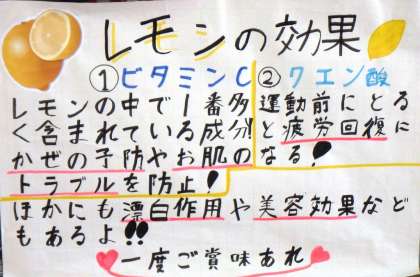 レモンの効果
①ビタミンC
レモンの中で1番多
く含まれている成分!
かぜの予防やお肌の
トラブルを防止!
②クエン酸
運動前にとる
と疲労回復に
なる!
ほかにも漂白作用や美容効果など
もあるよ!!
一度ご賞味あれ